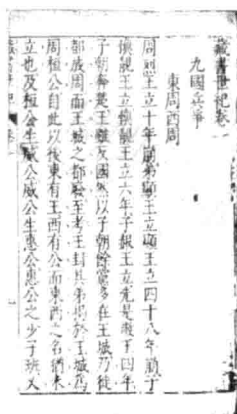 藏書世紀卷
九國兵爭
東周西周
周烈王立十年崩弟顯王立顯王立四十八年崩子
慎靚王立慎靚王立六年子赧王立先是敬王四年
子朝奔楚王雖反國然以子朝餘黨多在王城乃徙
都成周而王城之都廢至考王封其弟揭於王城為
周桓公自此以後東有王西有公而東西之名猶未
立也及桓公生威公威公生惠公惠公之少子班又